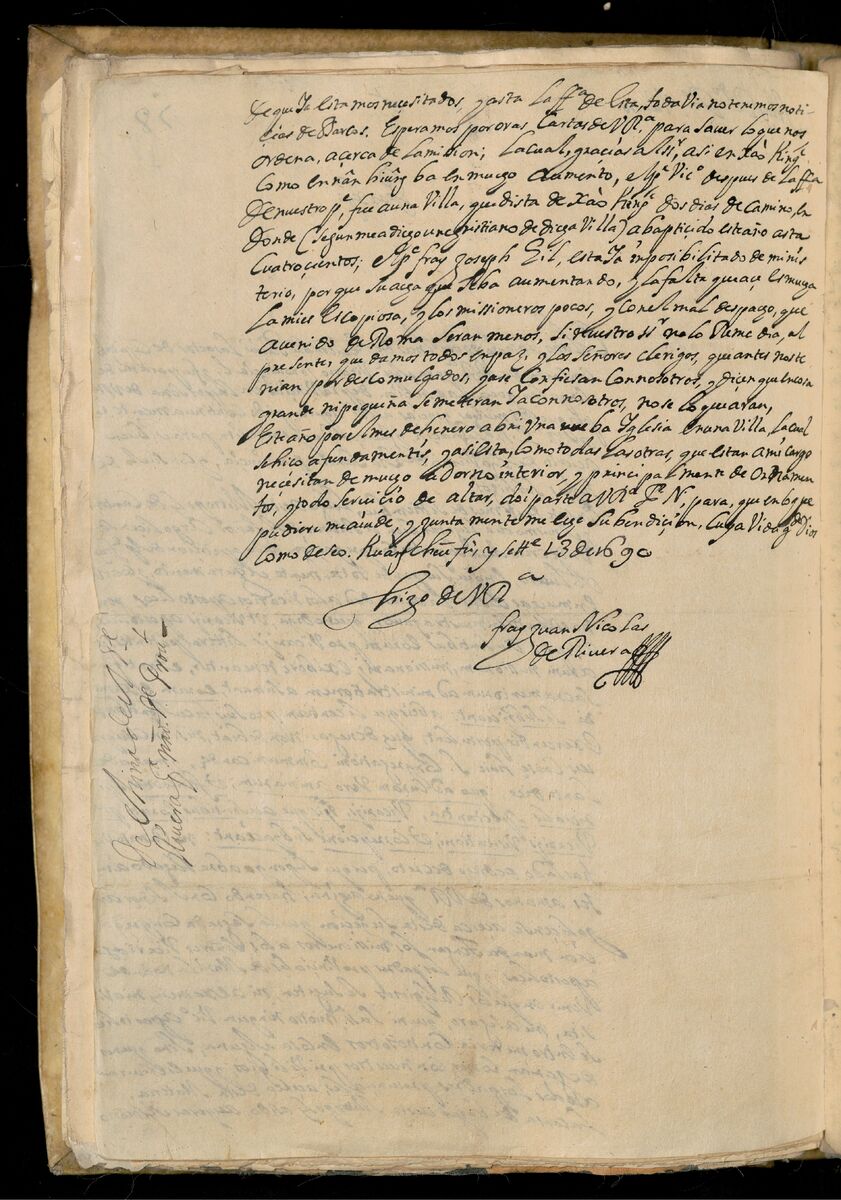 de que Ja estamos necesitados, y asta la ff.ª de esta, todavia no tenemos noti-
cias de Barcos. Esperamos por oras Cartas de VRª, para saver lo que nos
ordena, açerca de la mision; la cual, graçias a Nr̃ Sr, asi en Xaò King,
como en nân hiûng ba en muzo aumento, el Pe Vico despues de la ff.ª
de nuestro Pe, fue a una Villa, que dista de Xaò King dos dias de camino, en
donde (segun me a diego un cristiano de diega Villa) a baptiçido este año asta
cuatroçientos; el Pe fray Joseph Gil, esta Ja imposibilitado de minis
terio, por que su aga que se ba aumentando, y la falta que açe es muga
la mies es copiosa, y los missioneros pocos, y con el mal despago, que
a venido de Roma seran menos, si nuestro Sr no lo Reme dia, al
presente, quedamos todos en paz, y los Señores clerigos, que antes nos te
nian por descomulgados, ya se confiesan con nosotros, y diçen que en cosa
grande ni pequeña se meteran Ja con nosotros, no se lo que aran,
Este año por el mes de henero abri vna nueba Iglesia en una Villa, la cual
se hiço a fundamentis, y asi esta, como todas las otras, que estan a mi cargo
neçesitan de muzo adorno interior, y principalmente de ornamen
tos, y todo serviçio de altar, doi parte a VRª P. N. para, que en lo que
pudiere me aiude, y juntamente me ege su bendiçion, cuya vida gde Dios
como deseo. Kuàng cheu fu, y setbe 23 de 1690
hijo de VRª
fray Juan Nicolas
de Rivera